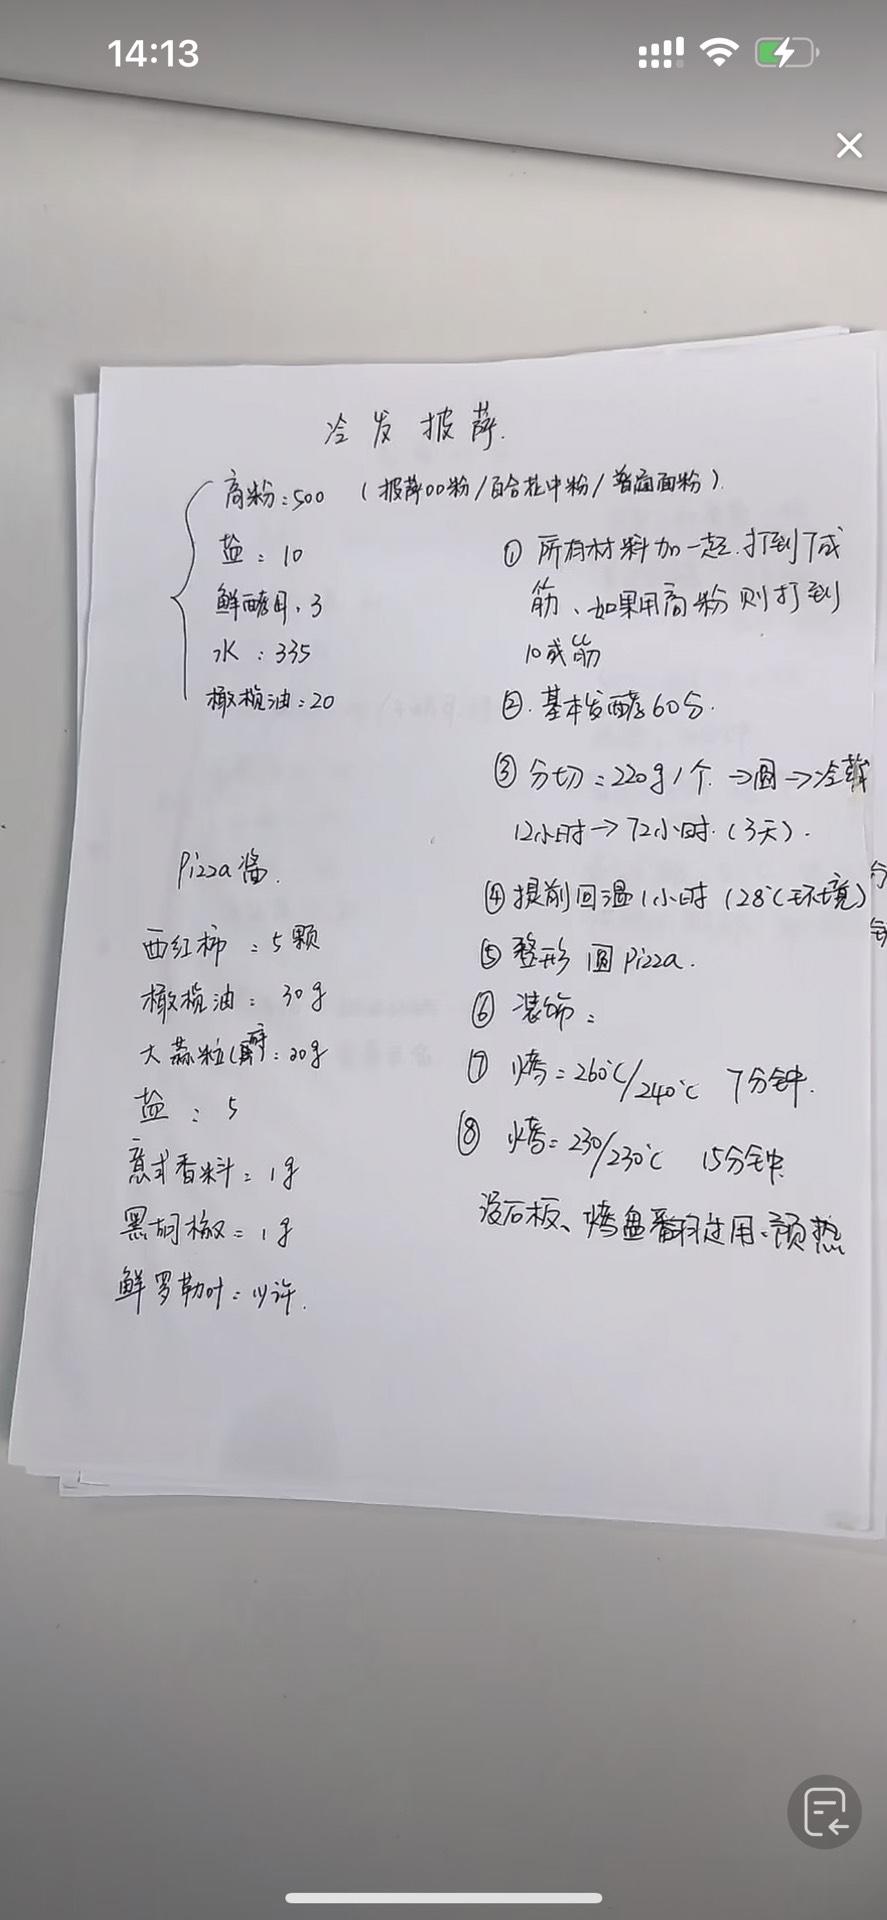 14:13
冷发披萨.
高粉:500 (披萨00粉/百合花中粉/普通面粉).
盐:10
鲜酵母、3
水:335
橄榄油:20
① 所有材料加一起.打到7成
筋、如果用高粉则打到
10成筋
②.基本发酵60分.
③ 分切:220g/个.→圆→冷藏
12小时→72小时.(3天).
④提前回温1小时(28℃环境)
⑤整形 圆Pizza.
⑥ 装饰:
⑦ 烤=260℃/240℃ 7分钟.
⑧ 烤=230/230℃ 15分钟.
没石板、烤盘翻过用、预热
Pizza酱.
西红柿:5颗
橄榄油:30g
大蒜粒():20g
盐:5
意式香料:1g
黑胡椒=1g
鲜罗勒叶=少许.